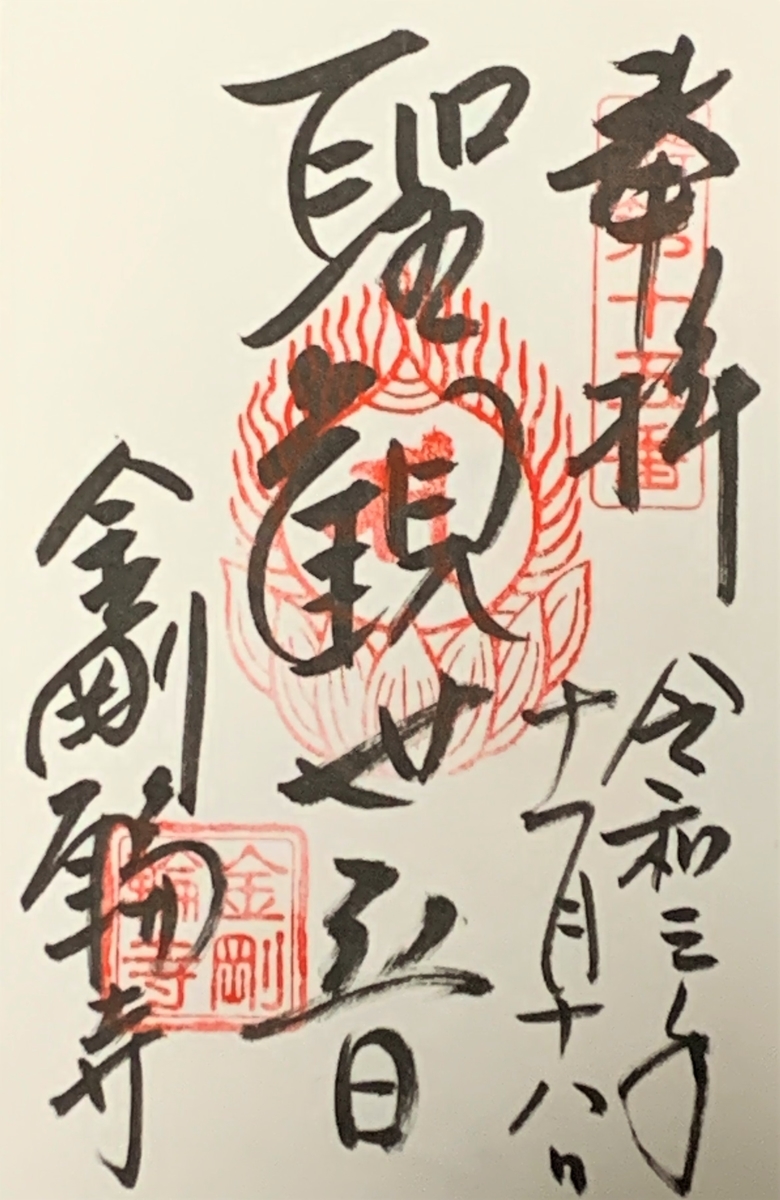 奉拝
第十五番
令和三年
十一月十八日
聖観世音
金剛輪寺
金剛
輪寺